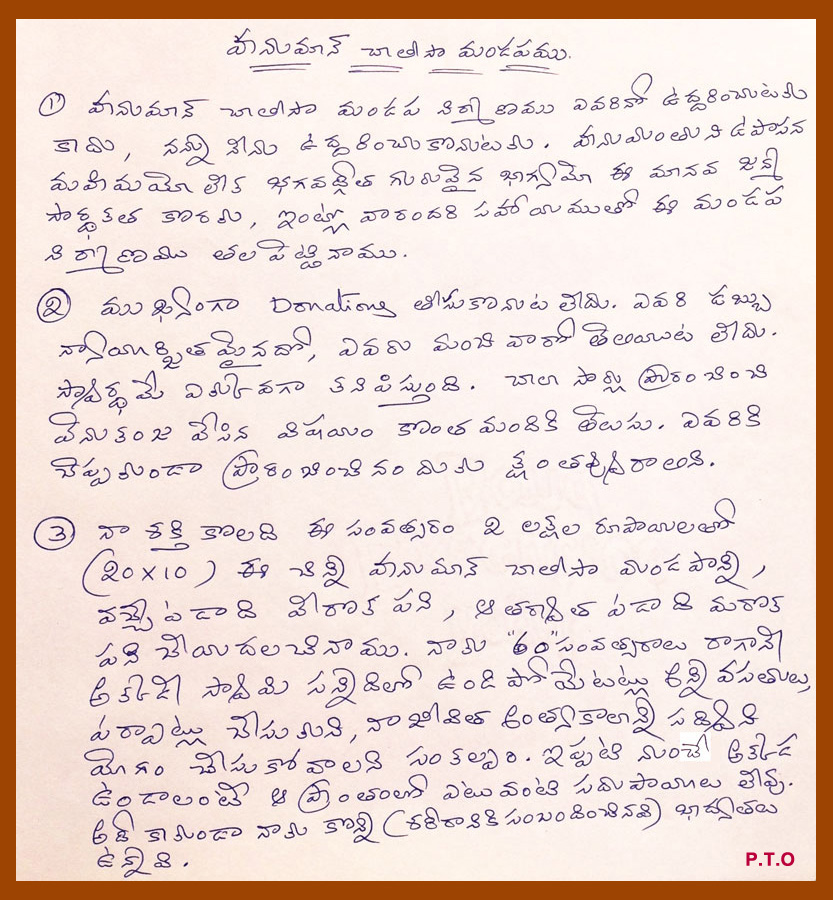 హనుమాన్ చాలీసా మండపము.
① హనుమాన్ చాలీసా మండప నిర్మాణము ఎవరినో ఉద్ధరించుటకు
కాదు, నన్ను నేను ఉద్ధరించుకొనుటకు. హనుమంతుని ఉపాసన
మహిమయో లేక భగవద్గీత గురువైన భాగ్యమో ఈ మానవ జన్మ
సార్ధకత కొరకు, ఇంట్లో వారందరి సహాయముతో ఈ మండప
నిర్మాణము తల పెట్టినాము.
② ముఖ్యంగా Donations తీసుకొనుట లేదు. ఎవరి డబ్బు
న్యాయార్జితమైనదో, ఎవరు మంచి వారో తెలియుట లేదు.
స్వార్ధమే ఎక్కువగా కనిపిస్తుంది. చాలా సార్లు ప్రారంభించి
వెనుకంజ వేసిన విషయం కొంత మందికి తెలుసు. ఎవరికి
చెప్పకుండా ప్రారంభించినందుకు క్షంతవ్యురాలిని.
③ నా శక్తి కొలది ఈ సంవత్సరం 2 లక్షల రూపాయిలతో
(20 X 10) ఈ చిన్ని హనుమాన్ చాలీసా మండపాన్ని,
వచ్చే ఏడాది వేరొక పని, ఆ తర్వాత ఏడాది మరొక
పని చేయదలచినాము. నాకు "60" సంవత్సరాలు రాగానే
అక్కడే స్వామి సన్నిధిలో ఉండి పోయేటట్లు అన్ని వసతులు,
ఏర్పాట్లు చేసుకుని, నా జీవిత అంత్యకాలాన్ని సద్విని
యోగం చేసుకోవాలని సంకల్పం. ఇప్పటి నుంచే అక్కడ
ఉండాలంటే ఆ ప్రాంతంలో ఎటువంటి సదుపాయాలు లేవు.
అదీ కాకుండా నాకు కొన్ని (శరీరానికి సంబంధించినవి) బాధ్యతలు
ఉన్నవి.
P.T.O